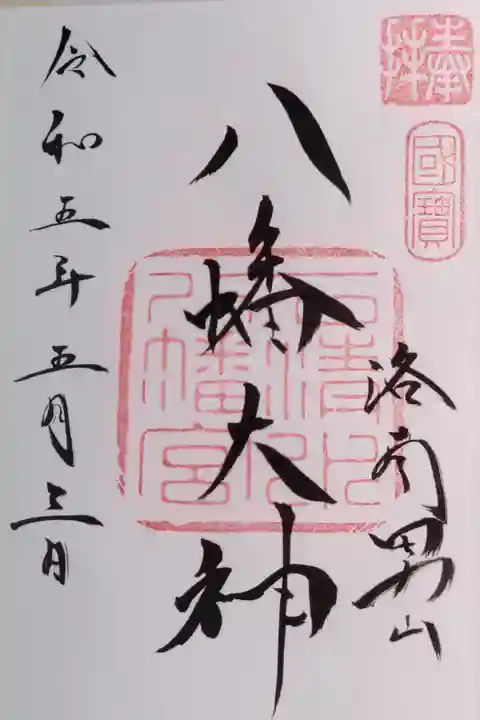 奉拝
國寶
洛南男山
八幡大神
石清水八幡宮
令和五年五月三日